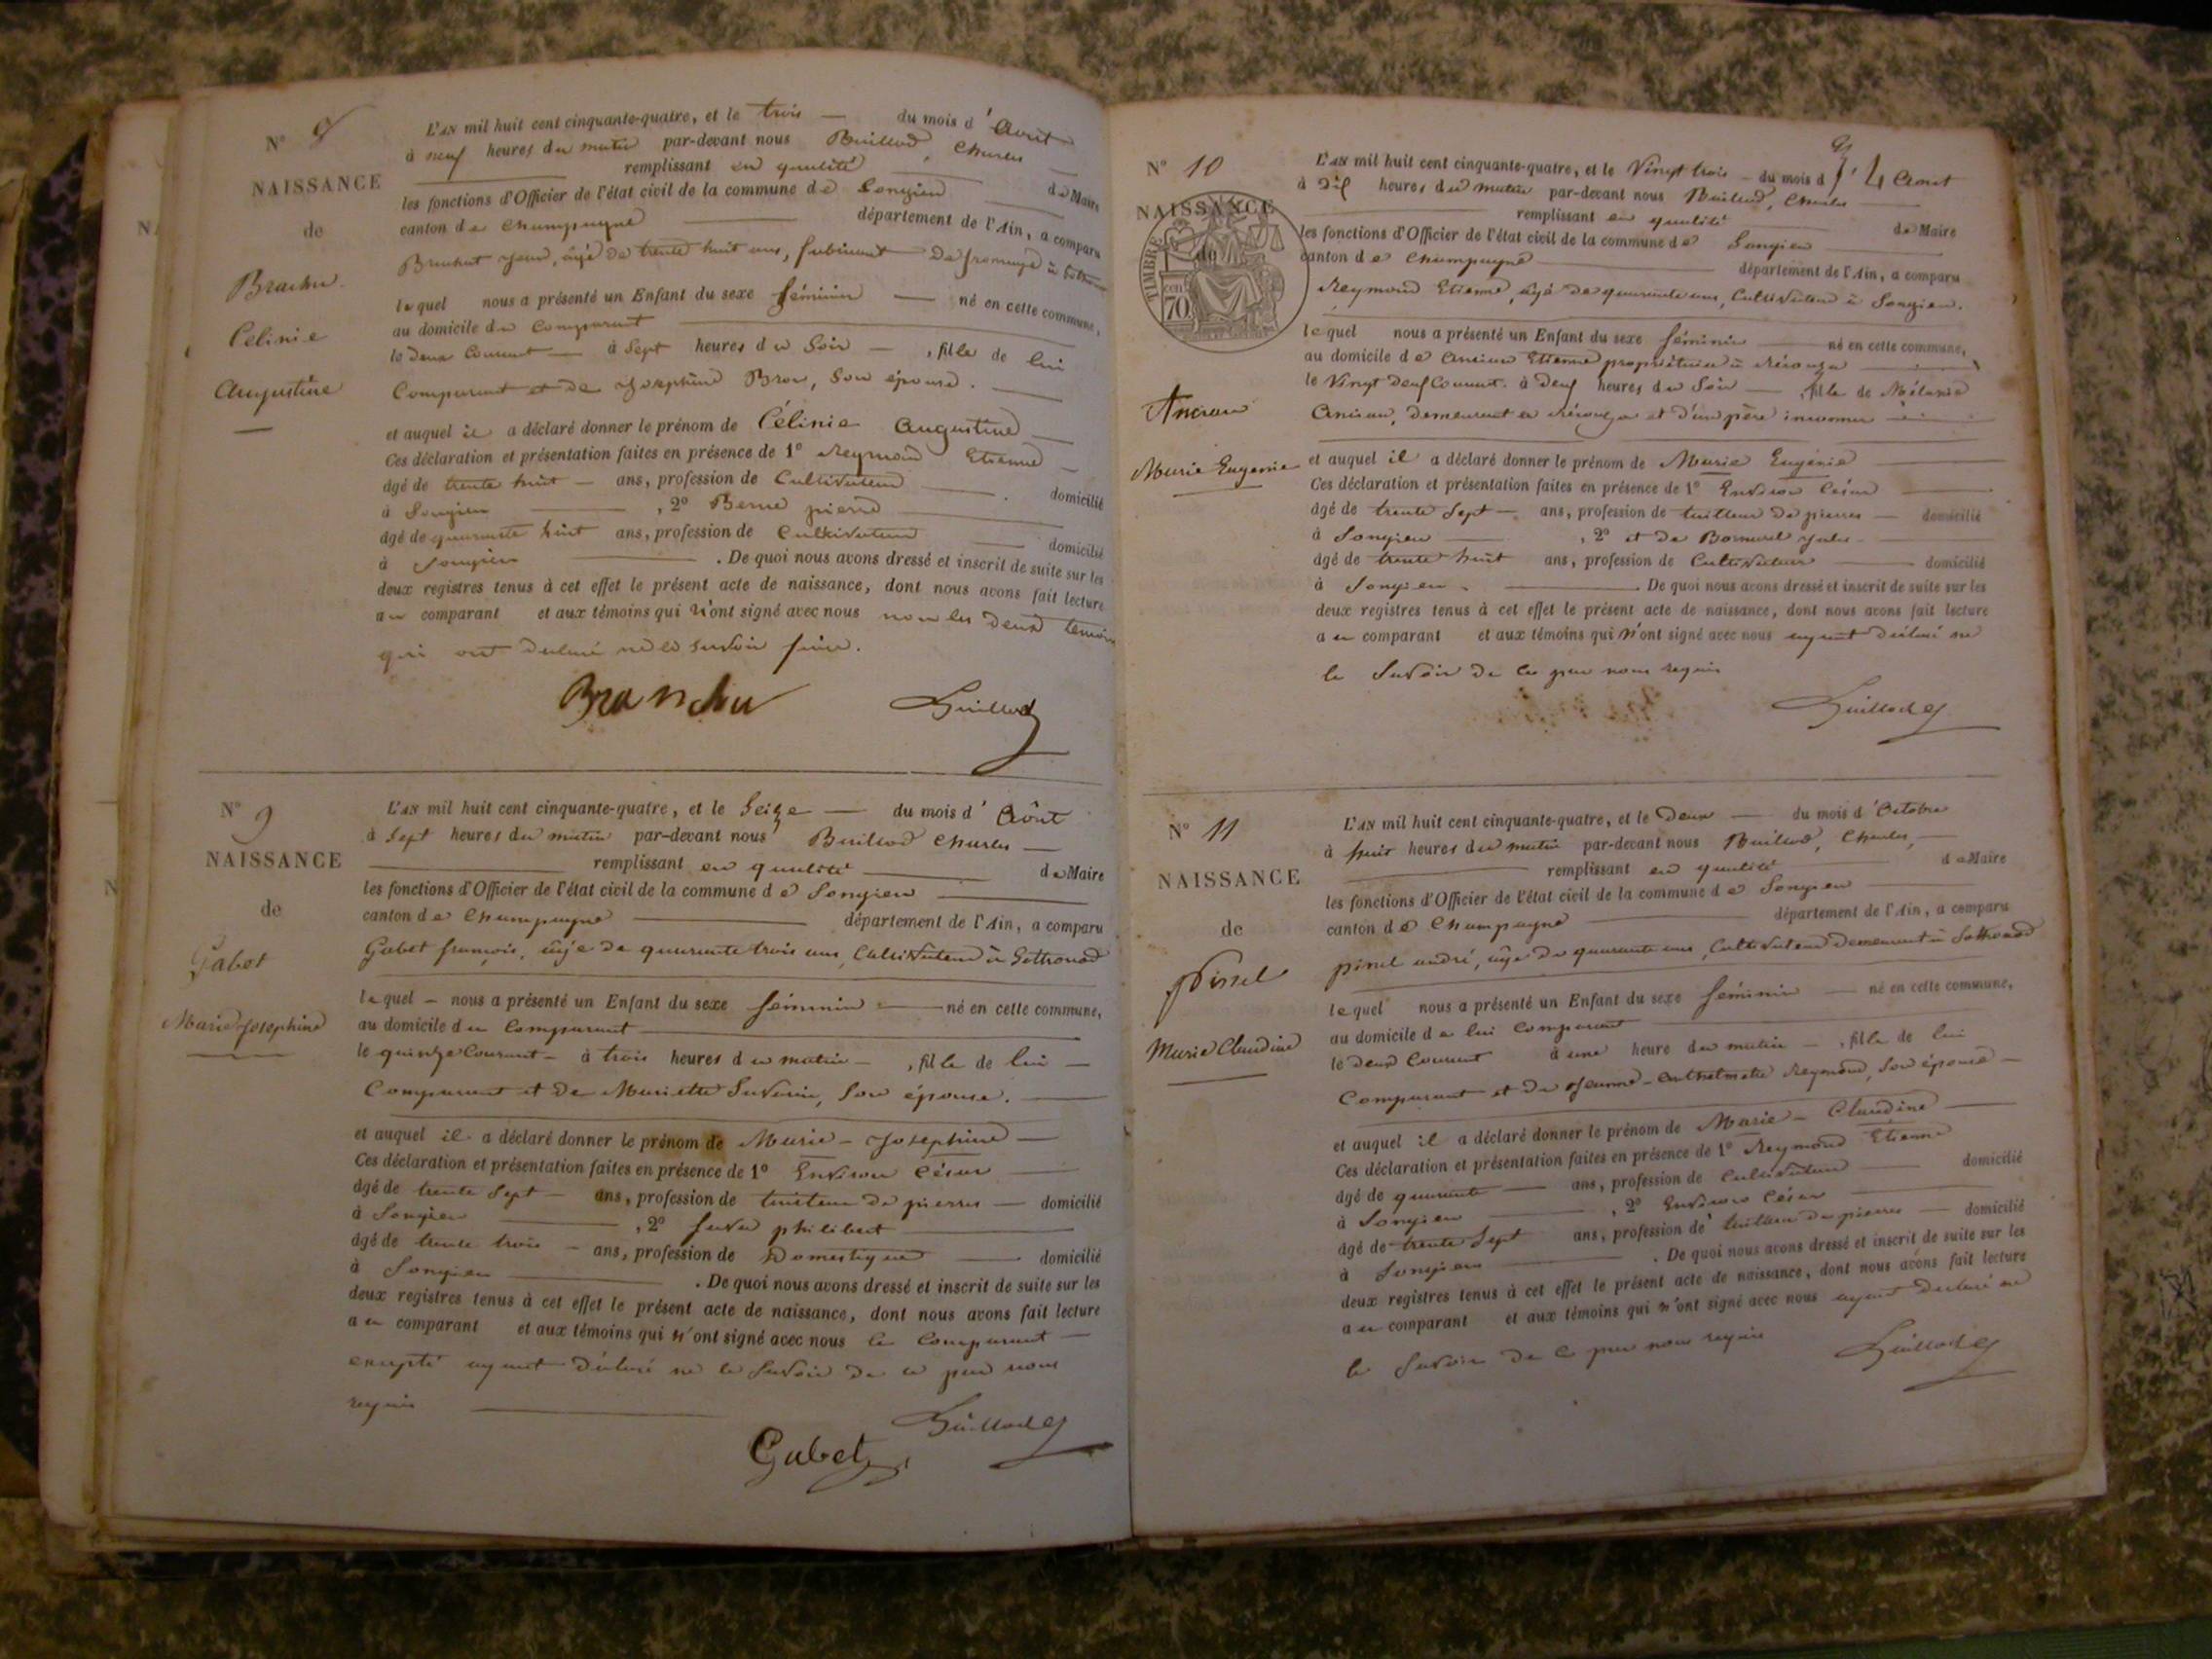 N° 8
NAISSANCE
de
Brachu
Celinie
Augustine
L'AN mil huit cent cinquante-quatre, et le trois — du mois d'Août
à neuf heures du matin par-devant nous Buillod, Charles
remplissant en qualité de Maire
les fonctions d'Officier de l'état civil de la commune de Songieu
canton de Champagne département de l'Ain, a comparu
Jean, âgé de trente huit ans, fabricant de fromage à
lequel nous a présenté un Enfant du sexe féminin — né en cette commune,
au domicile du Comparant
le deux Courant — à Sept heures du Soir — , fille de lui
Comparant et de Josephine Bron, Son épouse.
et auquel il a déclaré donner le prénom de Célinie Augustine
Ces déclaration et présentation faites en présence de 1° Reymond Etienne
âgé de trente huit — ans, profession de Cultivateur domicilié
à Songieu , 2° Berne pierre
âgé de quarante huit ans, profession de Cultivateur domicilié
à Songieu . De quoi nous avons dressé et inscrit de suite sur les
deux registres tenus à cet effet le présent acte de naissance, dont nous avons fait lecture
au comparant et aux témoins qui n'ont signé avec nous non les deux témoins
qui ont déclaré ne le savoir faire.
Branchu
N° 9
NAISSANCE
de
Gabet
Marie Josephine
L'AN mil huit cent cinquante-quatre, et le Seize — du mois d'Août
à Sept heures du matin par-devant nous Buillod Charles —
remplissant en qualité de Maire
les fonctions d'Officier de l'état civil de la commune de Songieu
canton de Champagne département de l'Ain, a comparu
Gabet françois, âgé de quarante trois ans, Cultivateur à Sothonod
lequel — nous a présenté un Enfant du sexe féminin — né en cette commune,
au domicile du Comparant
le quinze Courant — à trois heures du matin — , fille de lui —
Comparant et de Mariette Savarin, Son épouse.
et auquel il a déclaré donner le prénom de Marie - Josephine —
Ces déclaration et présentation faites en présence de 1° César
âgé de trente Sept — ans, profession de tailleur de pierres — domicilié
à Songieu , 2° philibert
âgé de trente trois — ans, profession de Domestique domicilié
à Songieu . De quoi nous avons dressé et inscrit de suite sur les
deux registres tenus à cet effet le présent acte de naissance, dont nous avons fait lecture
au comparant et aux témoins qui n'ont signé avec nous le Comparant —
excepté ayant déclaré ne le Savoir de ce par nous
requis
Gabet
4
N° 10
NAISSANCE
de
TIMBRE
70
Ancian
Marie Eugenie
L'AN mil huit cent cinquante-quatre, et le Vingt trois — du mois d'Août
à dix heures du matin par-devant nous Buillod, Charles
remplissant en qualité de Maire
les fonctions d'Officier de l'état civil de la commune de Songieu
canton de Champagne département de l'Ain, a comparu
Reymond Etienne, âgé de quarante ans, Cultivateur à Songieu.
lequel nous a présenté un Enfant du sexe féminin né en cette commune,
au domicile de Ancian Etienne propriétaire à
le Vingt deux Courant à deux heures du Soir — , fille de Mélanie
Ancian, demeurant à et d'un père inconnu
et auquel il a déclaré donner le prénom de Marie Eugénie
Ces déclaration et présentation faites en présence de 1° César
âgé de trente Sept — ans, profession de tailleur de pierres — domicilié
à Songieu , 2° et de Jules
âgé de trente huit ans, profession de Cultivateur domicilié
à Songieu. De quoi nous avons dressé et inscrit de suite sur les
deux registres tenus à cet effet le présent acte de naissance, dont nous avons fait lecture
au comparant et aux témoins qui n'ont signé avec nous ayant déclaré ne
le Savoir de ce par nous requis
N° 11
NAISSANCE
de
Pinel
Marie Claudine
L'AN mil huit cent cinquante-quatre, et le Deux — du mois d'Octobre
à huit heures du matin par-devant nous Buillod, Charles, —
remplissant en qualité de Maire
les fonctions d'Officier de l'état civil de la commune de Songieu
canton de Champagne département de l'Ain, a comparu
pinel andré, âgé de quarante ans, Cultivateur Demeurant à Sothonod
lequel nous a présenté un Enfant du sexe féminin — né en cette commune,
au domicile de lui Comparant
le deux Courant à une heure du matin — , fille de lui
Comparant et de Jeanne - Reymond, Son épouse —
et auquel il a déclaré donner le prénom de Marie - Claudine
Ces déclaration et présentation faites en présence de 1° Reymond Etienne
âgé de quarante — ans, profession de Cultivateur domicilié
à Songieu , 2° César
âgé de trente Sept ans, profession de tailleur de pierres — domicilié
à Songieu . De quoi nous avons dressé et inscrit de suite sur les
deux registres tenus à cet effet le présent acte de naissance, dont nous avons fait lecture
au comparant et aux témoins qui n'ont signé avec nous ayant déclaré ne
le Savoir de ce par nous requis